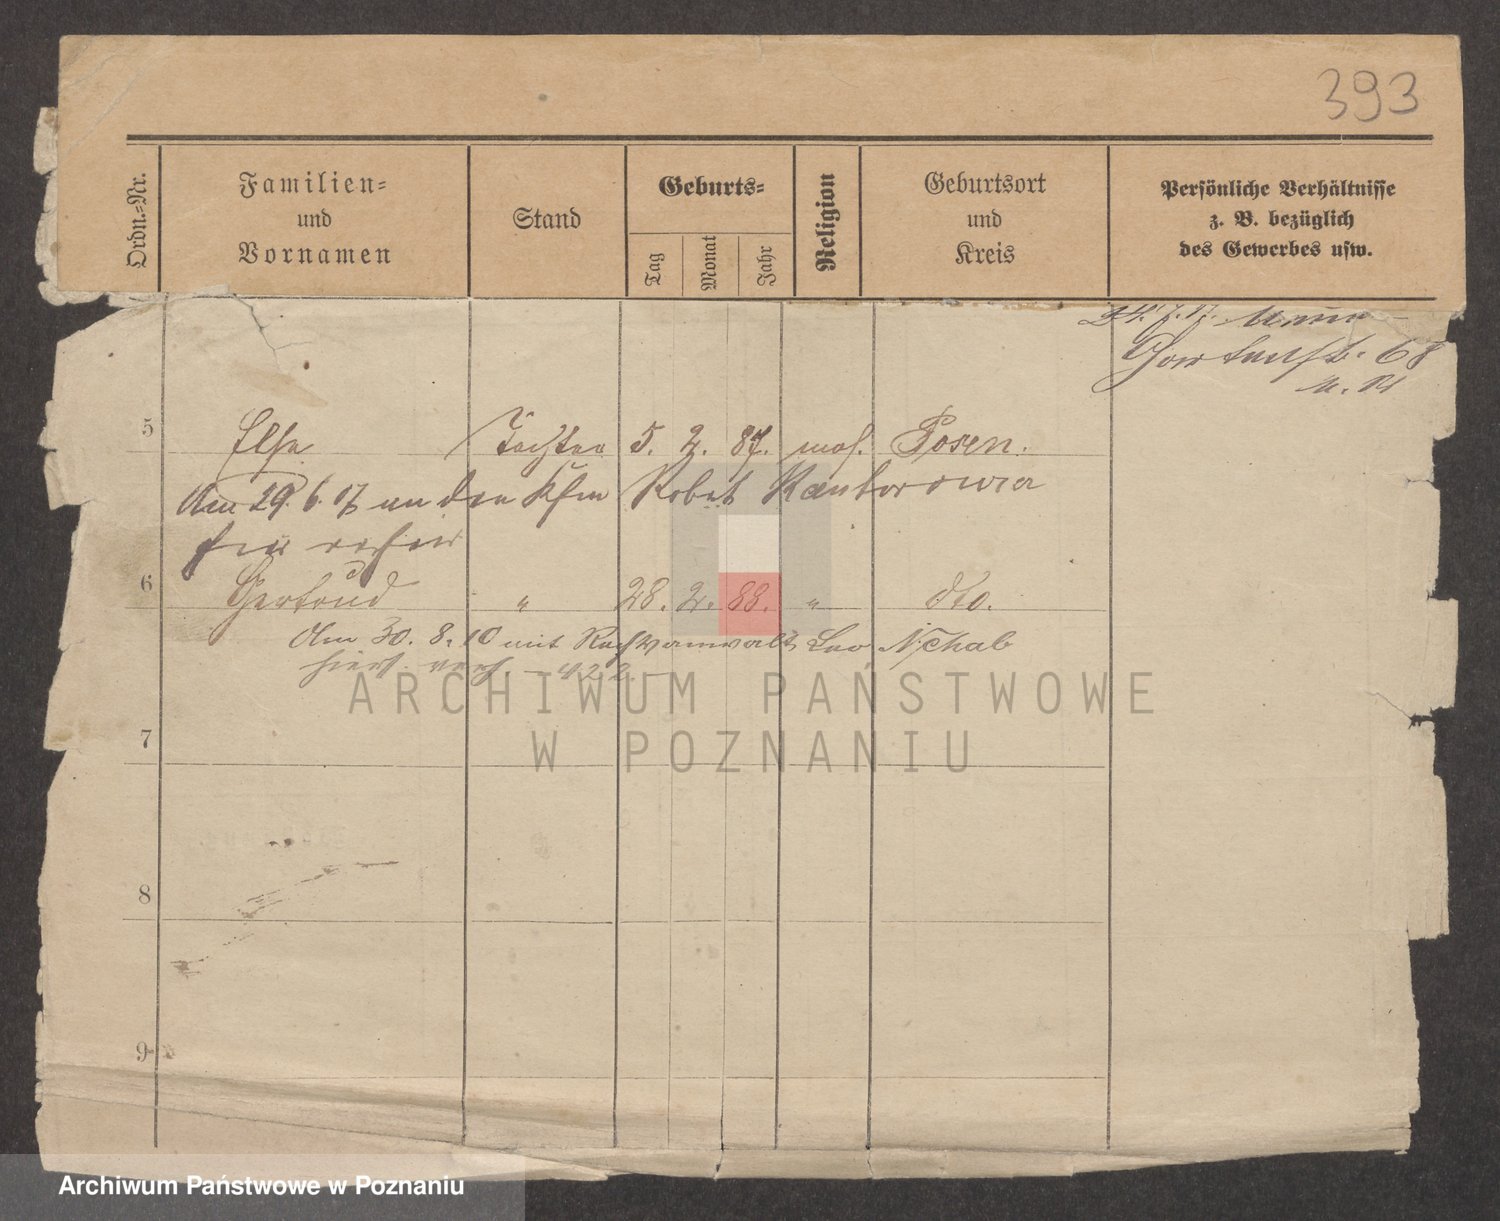 393
Ordn.-Nr.
Familien-
und
Vornamen
Stand
Geburts-
Tag
Monat
Jahr
Religion
Geburtsort
und
Kreis
Persönliche Verhältnisse
z. B. bezüglich
des Gewerbes usw.
24. 7. 17.
Gartenstr. 68
5 Else Tochter 5. 2. 87. mos. Posen.
Am 29. 6. 17 an den Kfm Robert Kantorowicz
6 Gertrud " 28. 2. 88. " dto.
Am 30. 8. 10 mit Rechtsanwalt Leo
hier verh.
7
8
9
ARCHIWUM PAŃSTWOWE
W POZNANIU
Archiwum Państwowe w Poznaniu